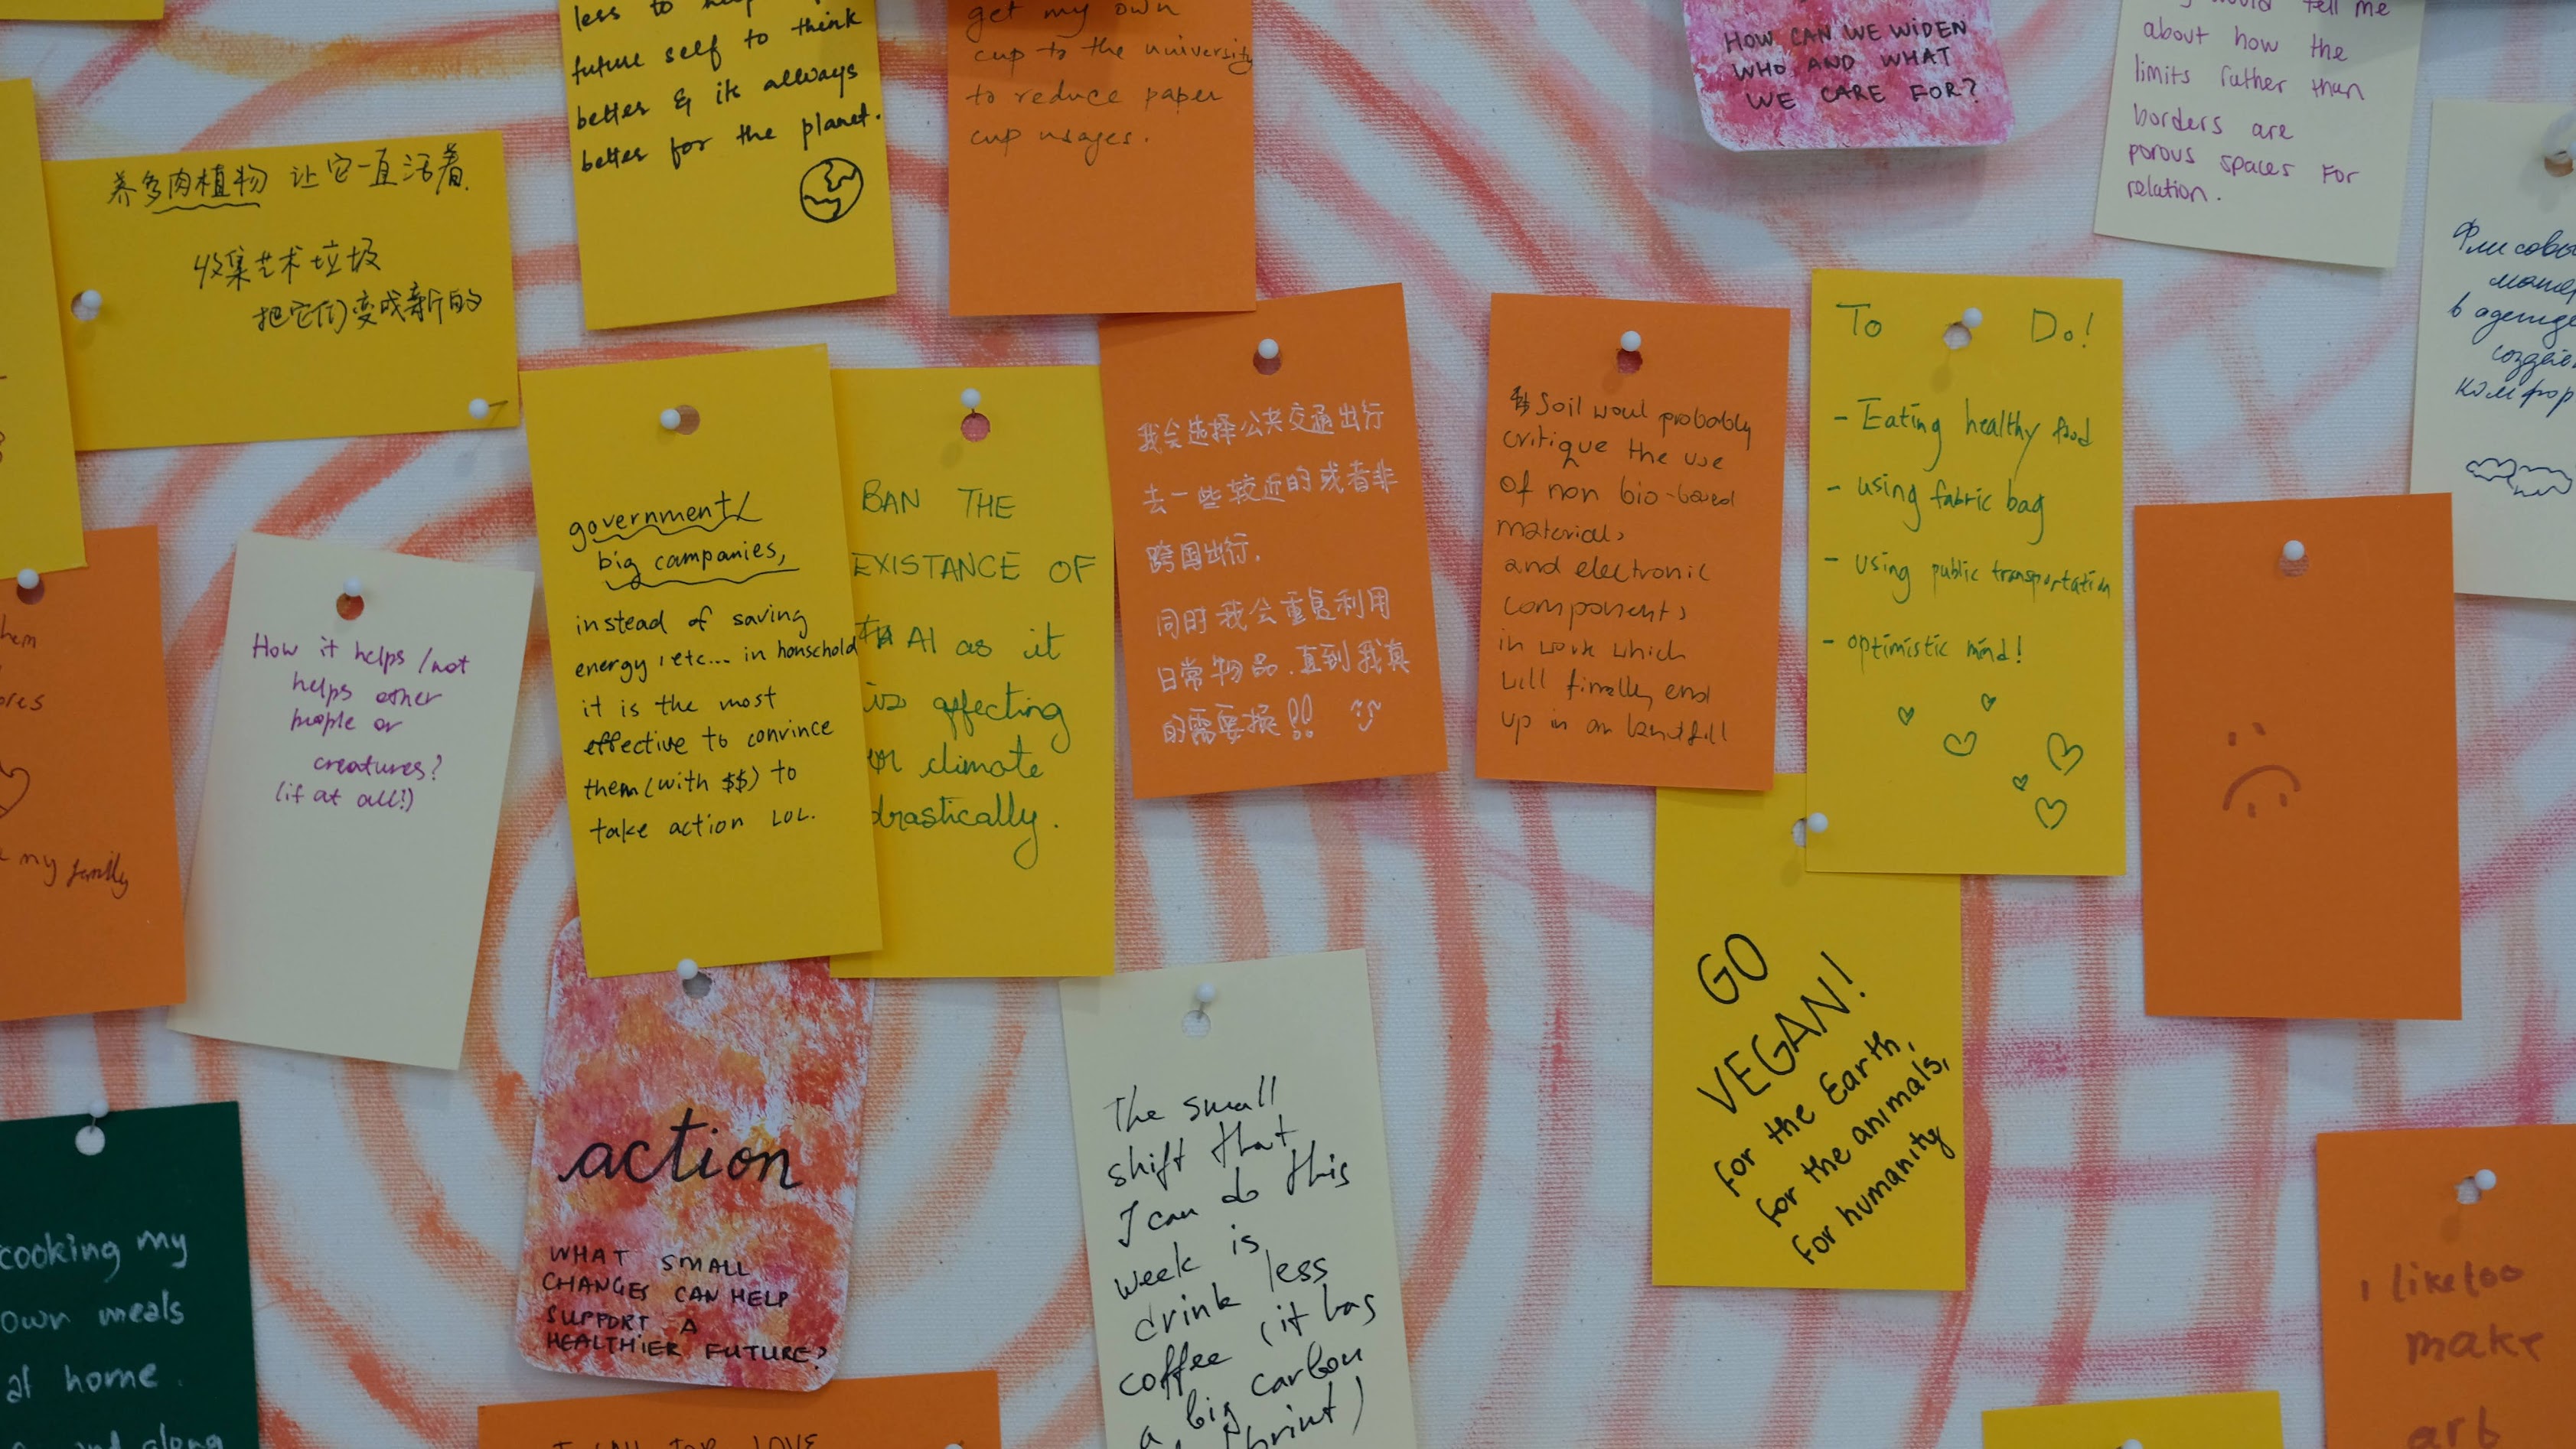 less to
future self to think
better & its always
better for the planet.
get my own
cup to the university
to reduce paper
cup usages.
HOW CAN WE WIDEN
WHO AND WHAT
WE CARE FOR?
would tell me
about how the
limits rather than
borders are
porous spaces for
relation.
养多肉植物 让它一直活着
收集艺术垃圾
把它们变成新的
в
government/
big companies,
instead of saving
energy, etc... in household
it is the most
effective to convince
them (with $$) to
take action LOL.
BAN THE
EXISTANCE OF
AI as it
is affecting
our climate
drastically.
我会选择公共交通出行
去一些较近的或者非
跨国出行.
同时我会重复利用
日常物品.直到我真
的需要换!!
Soil woul probably
critique the use
of non bio-based
materials
and electronic
components
in work which
will finally end
up in an landfill
To Do!
- Eating healthy food
- using fabric bag
- using public transportation
- optimistic mind!
my family
How it helps/not
helps other
people or
creatures?
(if at all!)
action
WHAT SMALL
CHANGES CAN HELP
SUPPORT A
HEALTHIER FUTURE?
The small
shift that
I can do this
week is
drink less
coffee (it has
a big carbon
GO
VEGAN!
for the Earth,
for the animals,
for humanity
cooking my
own meals
at home.
and along
I like too
make
art
LOVE